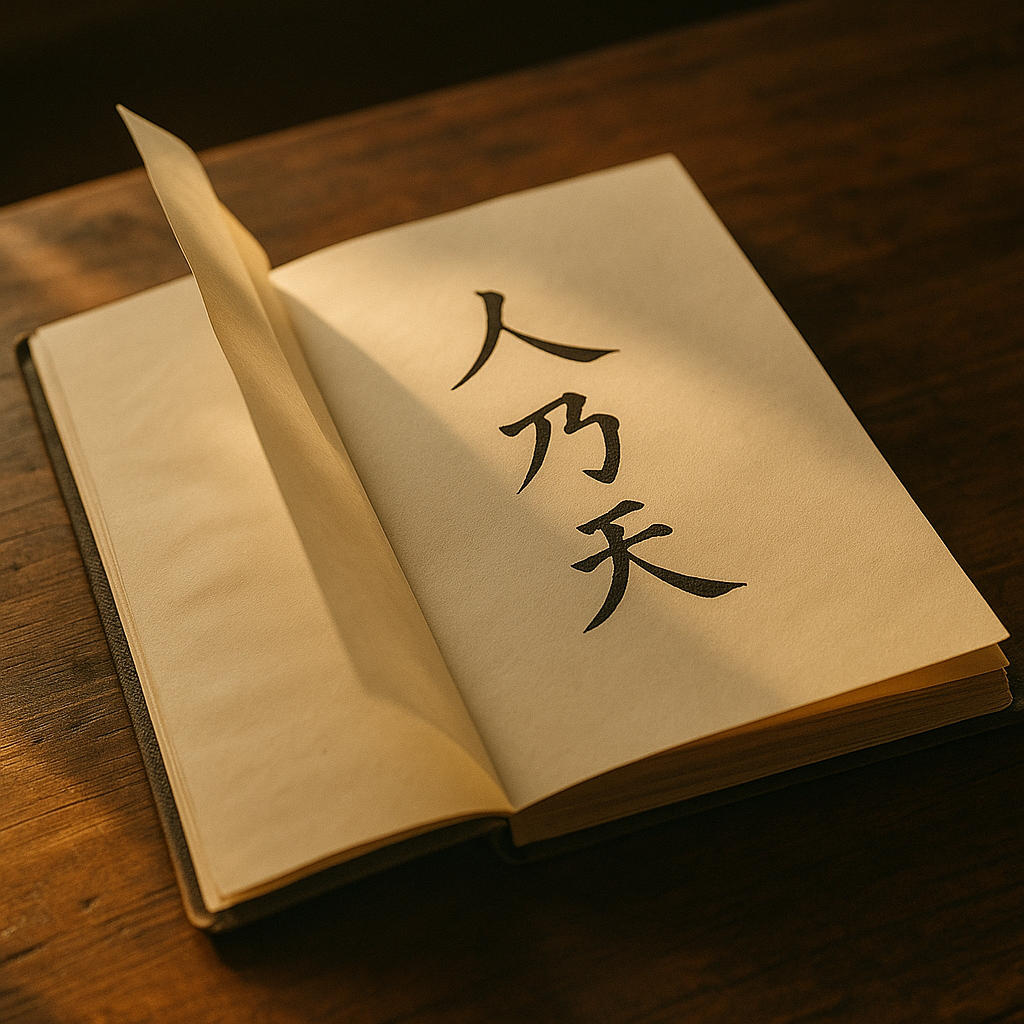 人乃天